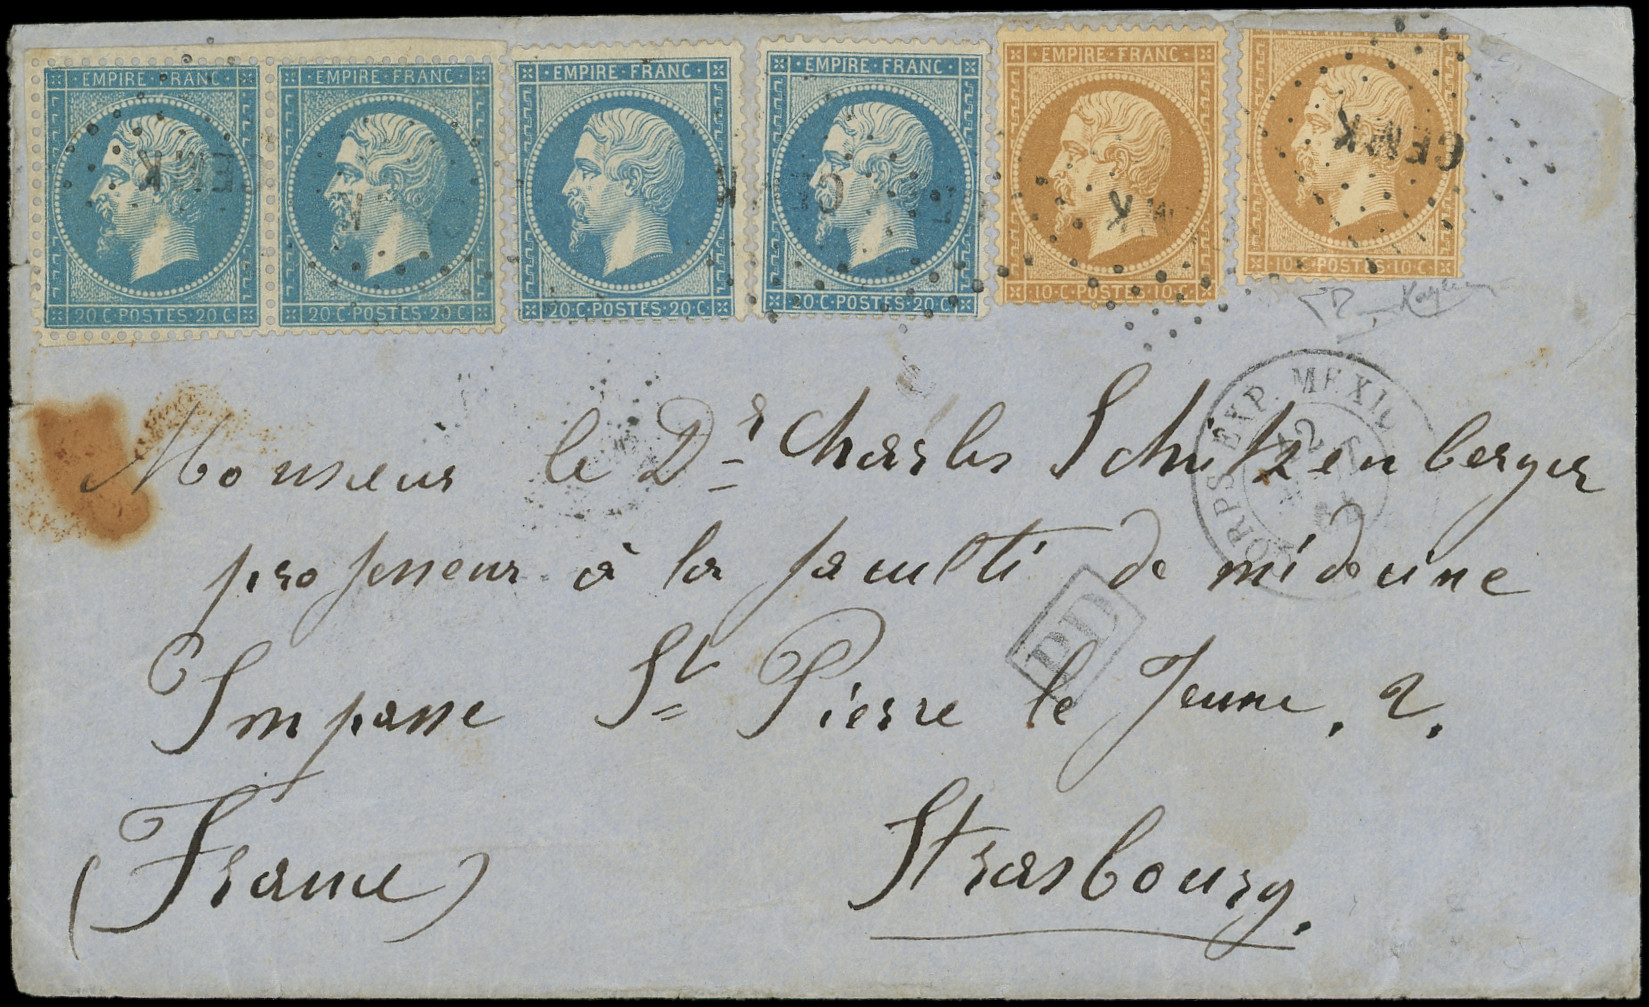 EMPIRE·FRANC· EMPIRE·FRANC· EMPIRE·FRANC· EMPIRE·FRANC· EMPIRE·FRANC· EMPIRE·FRANC·
20·C·POSTES·20·C 20·C·POSTES·20·C 20·C·POSTES·20·C 20·C·POSTES·20·C 10·C·POSTES·10·C 10·C·POSTES·10·C
CORPS EXP. MEXIC
Monsieur le Dr Charles Schützenberger
professeur à la faculté de médecine
PD
Impasse St Pierre le Jeune. 2.
(France) Strasbourg.